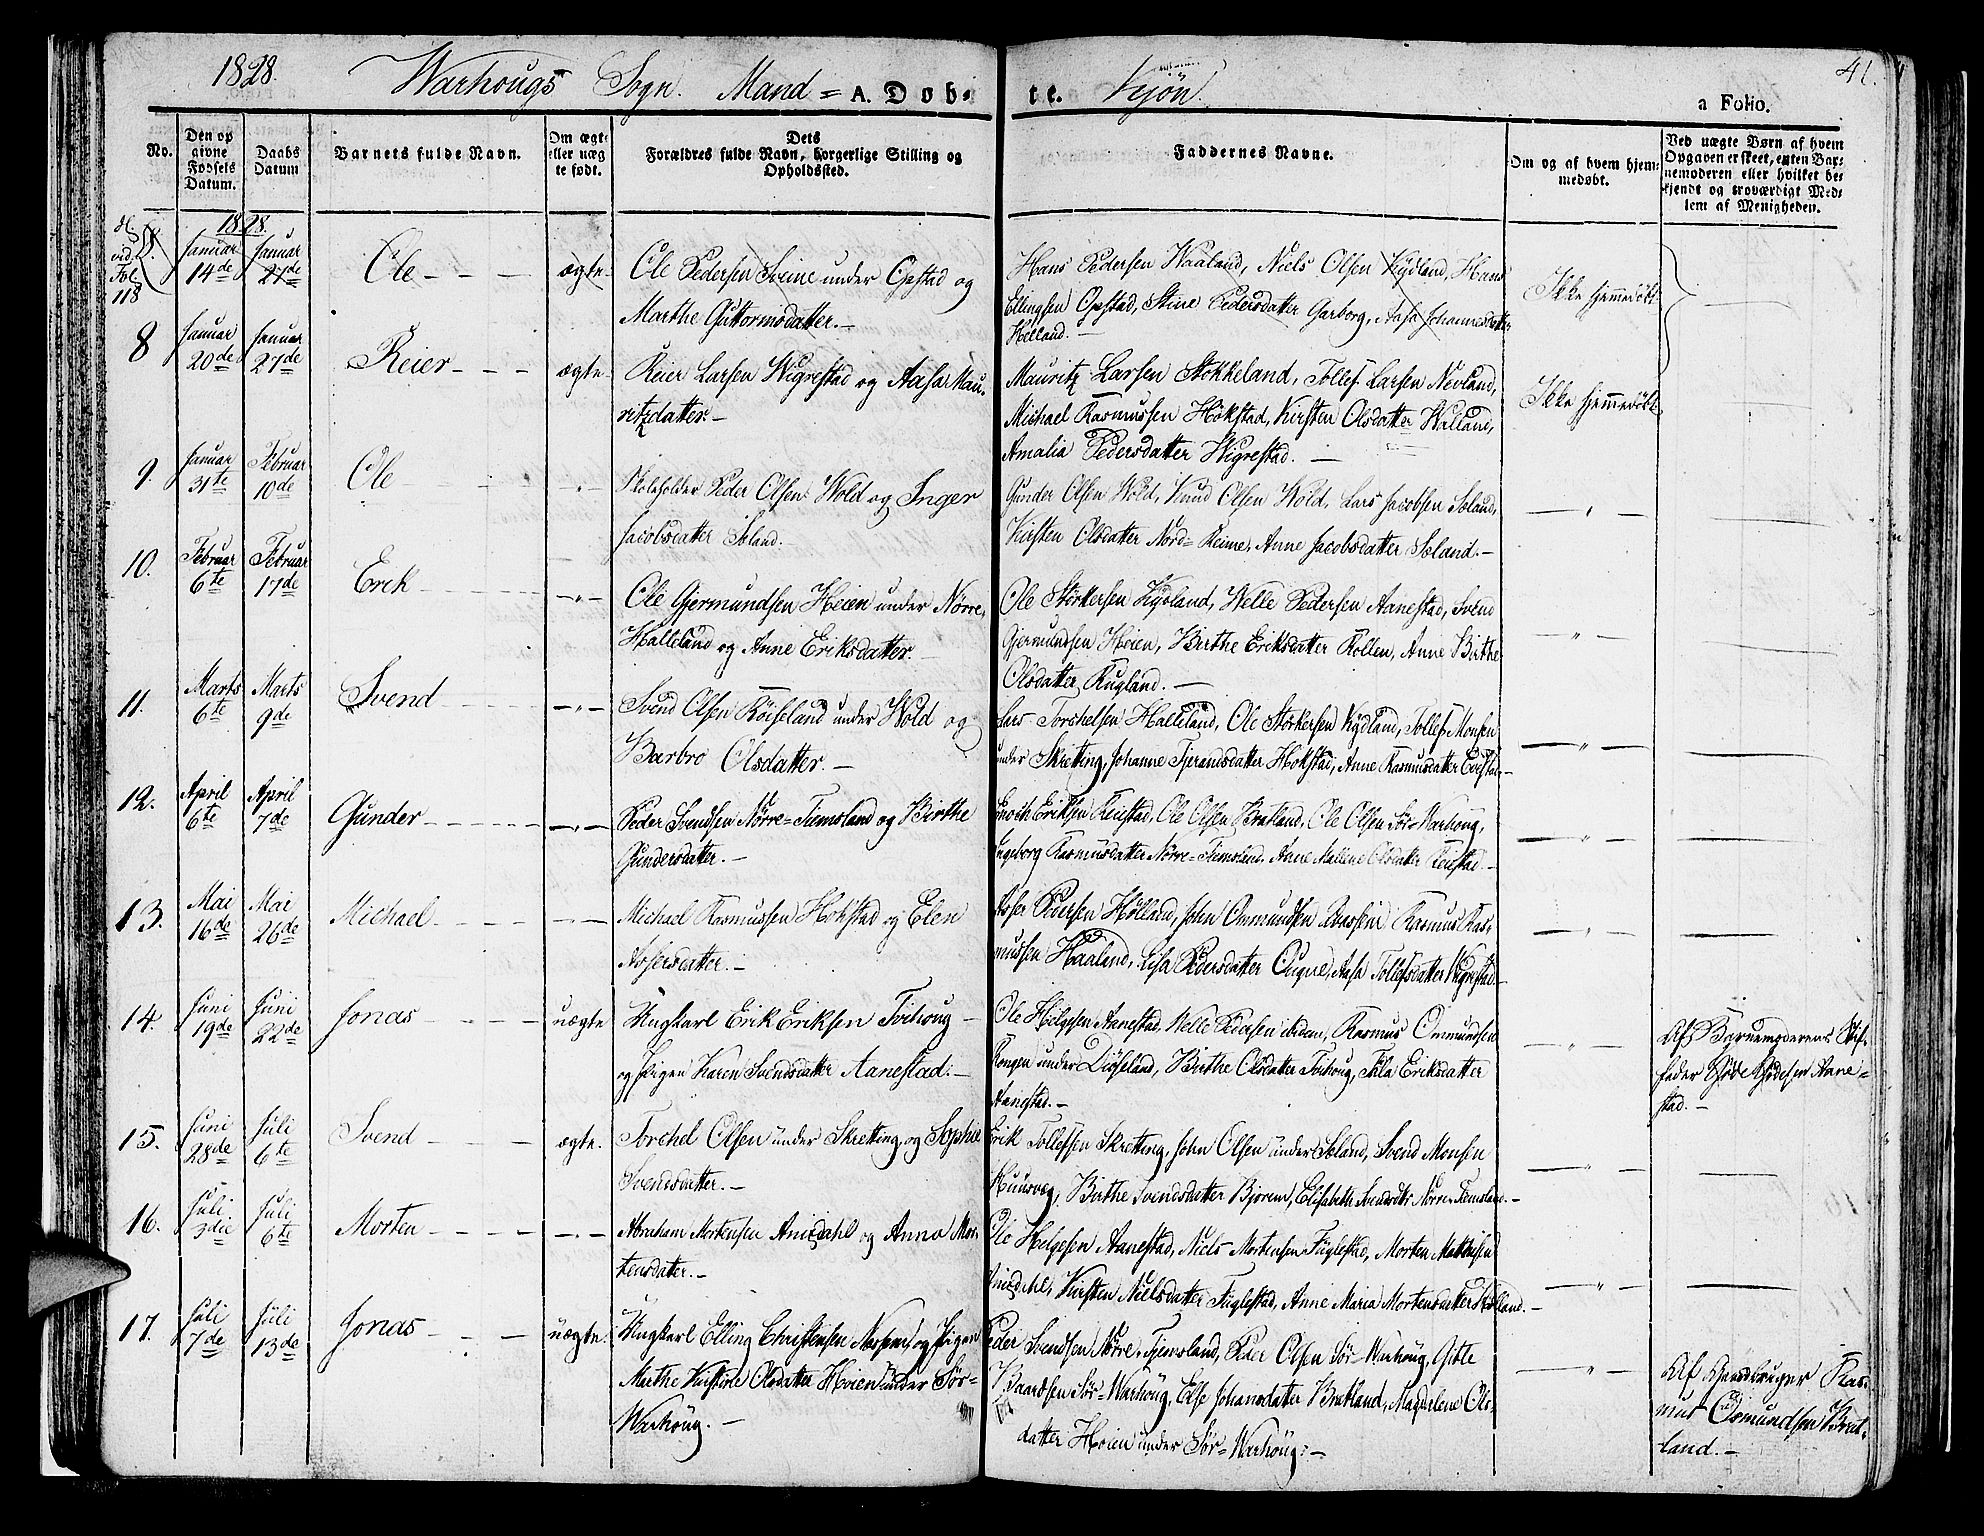 1828. Warhougs Sogn. Mand = A. Døb- te. Kjön. 41.
a Folio.
No.
Den op givne Fødsels Datum.
Daabs Datum
Barnets fulde Navn.
Om ægte eller uæg te født.
Dets Forældres fulde Navn, borgerlige Stilling og Opholdssted.
Faddernes Navne.
Om og af hvem hjem- medøbt.
Ved uægte Børn af hvem Opgaven er skeet, enten Bar- nemoderen eller hvilket be- kjendt og troværdigt Med- lem af Menigheden.
1828.
vid. Fol. 118
Januar 14de
Januar 27de
Ole
ægte
Ole Pedersen Sveine under Opstad og
Marthe Guttormsdatter.
Hans Pedersen Waaland, Niels Olsen Kydland, Hans
Ellingsen Opstad, Stine Pedersdatter Garborg, Aasa Johannesdatter
Helland.
Ikke hjemmedøbt
8
Januar 20de
Januar 27de
Reier
ægte
Reier Larsen Wigrestad og Aasa Mau-
ritzdatter.
Mauritz Larsen Stokkeland, Tollef Larsen Nevland,
Michael Rasmussen Hökstad, Kirsten Olsdatter Walland,
Amalia Pedersdatter Wigrestad.
Ikke hjemmedøbt
9.
Januar 31te
Februar 10de
Ole
Skoleholder Peder Olsen Wold og Inger
Jacobsdatter Soland.
Gunder Olsen Wold, Knud Olsen Wold, Lars Jacobsen Soland,
Kirsten Olsdatter Nord=Reime, Anne Jacobsdatter Soland.
10.
Februar 6te
Februar 17de
Erik
Ole Gjermundsen Heien under Nörre
Halleland og Anne Eriksdatter.
Ole Störkersen Kydland, Welle Pedersen Aanestad, Svend
Gjermundsen Hoien, Birthe Eriksdatter Kollen, Anne Birthe
Olsdatter Rugland.
11.
Marts 6te
Marts 9de
Svend
Svend Olsen Röiseland under Wold og
Barbro Olsdatter.
Lars Torchelsen Halleland, Ole Störkersen Kydland, Tollef Monsen
under Skretting, Johanne Tjerandsdatter Hokstad, Anne Rasmusdatter Evestad
12.
April 6te
April 7de
Gunder
Peder Svendsen Nörre=Tiemsland og Birthe
Gundersdatter.
Enoch Eriksen Reistad, Ole Olsen Bratland, Ole Olsen Sör=Warhoug,
Ingeborg Rasmusdatter Nörre=Tiemsland, Anne Mallene Olsdatter Reistad.
13.
Mai 16de
Mai 26de
Michael
Michael Rasmussen Hokstad og Elen
Assersdatter.
Asser Pedersen Hölland, John Ommundsen Rasmus Ras-
mussen Haaland, Lisa Pedersdatter Aasa Tollefsdatter Wigrestad
14.
Juni 19de
Juni 22de
Jonas
uægte
Ungkarl Erik Eriksen Tvihoug
og Pigen Karen Svendsdatter Aanestad.
Ole Helgesen Aanestad, Welle Pedersen ibidem, Rasmus Ommundsen
Rongen under Diöseland, Birthe Olsdatter Tvihoug, Tala Eriksdatter
Aanestad.
Af Barnemoderens Stif-
fader Aane-
stad.
15.
Juni 28de
Juli 6te
Svend
ægte.
Torchel Olsen under Skretting og Sophie
Svendsdatter.
Erik Tollefsen Skretting, John Olsen under Soland, Svend Monsen
Huusveg, Birthe Svendsdatter Bjorem, Elisabeth Svendsdtr Nörre=Tiemsland.
16.
Juli 3die
Juli 6te
Morten
Abraham Mortensen Anisdahl og Anna Mor-
tensdatter.
Ole Helgesen Aanestad, Niels Mortensen Fuglestad, Morten Mathisen
Anisdahl, Kirsten Nielsdatter Fuglestad, Anne Maria Mortensdatter Hölland.
17.
Juli 7de
Juli 13de
Jonas
uægte.
Ungkarl Elling Christensen og Pigen
Marthe Kirstine Olsdatter Hoien under Sör-
Warhoug.
Peder Svendsen Nörre=Tjemsland, Peder Olsen Sör=Warhoug, Gitle
Baardsen Sör=Warhoug, Else Johansdatter Bratland, Magdelene Ols-
datter Hoien under Sör=Warhoug.
Af Ras-
mus Osmundsen Brat-
land.